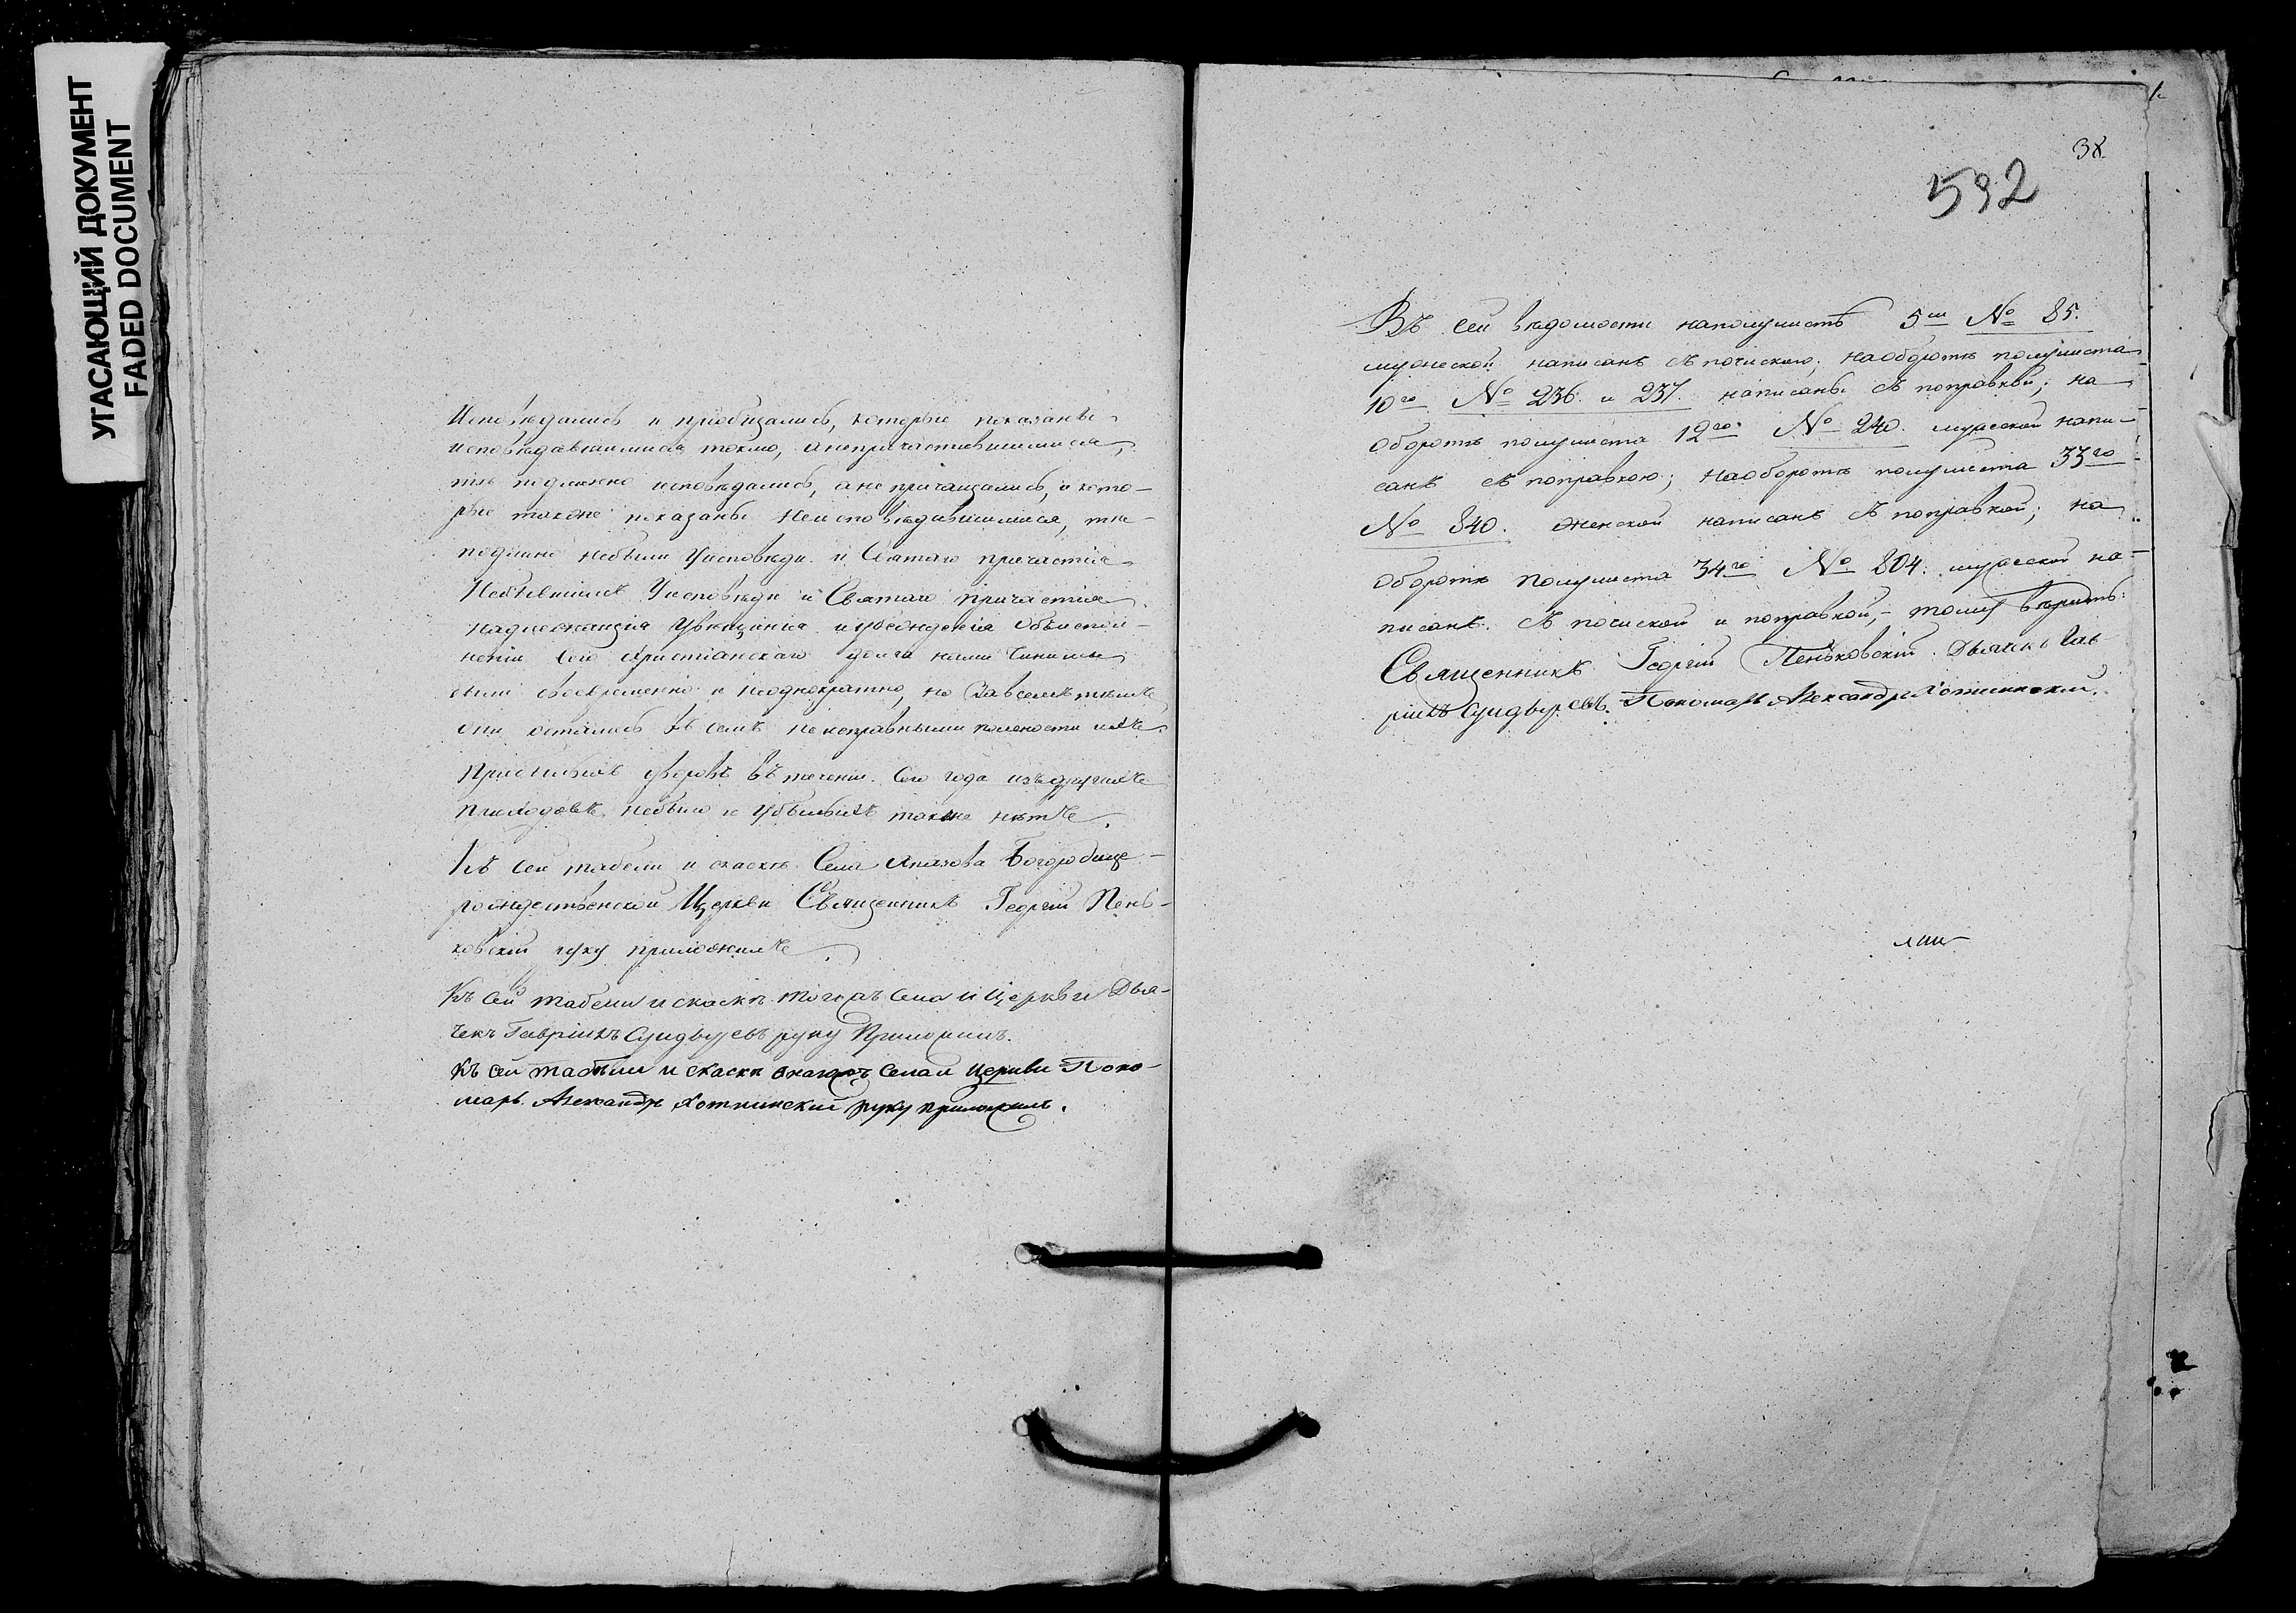 УГАСАЮЩИЙ ДОКУМЕНТ
FADED DOCUMENT
Исповѣдались и пріобщались, которые показаны
исповѣдавшимися токмо, а непричастившимися,
тѣ подлинно исповѣдались, а не причащались, и кото-
рые также показаны неисповѣдавшимися, тѣ
подлинно небыли у исповѣди и Святаго причастія
Небывшимъ у исповѣди и Святаго причастія
надлежащія увѣщанія и убѣжденія объ испол-
неніи сего христіанскаго долга нами чинимы
были своевременно и неоднократно, но за всемъ тѣмъ
они остались въ семъ неисправными
Прибылыхъ дворовъ въ теченіи сего года изъ другихъ
приходовъ небыло и убылыхъ также нѣтъ.
Къ сей табели и сказкѣ Села Богородице-
рождественской Церкви Священникъ Георгій Пень-
ковскій руку приложилъ.
Къ сей табели и сказкѣ тогожъ села и Церкви Дья-
чекъ Гавріилъ руку Приложилъ.
Къ сей табели и сказки онагожъ села и церкви Поно-
марь Александръ Хотминскій руку приложилъ.
38
592
Въ сей вѣдомости наполулистѣ 5м № 85.
мужеской написанъ съ почискою; наоборотѣ полулиста
10го № 236. и 237. написаны съ поправкой; на
оборотѣ полулиста 12го № 240. мужеской напи-
санъ съ поправкою; наоборотѣ полулиста 33го
№ 840. женской написанъ съ поправкой; на
оборотѣ полулиста 34го № 804. мужеской на-
писанъ съ почиской и поправкой, тому вѣрить:
Священникъ Георгій Пеньковскій. Дьячекъ Гав
ріилъ Пономарь Александръ Хотминскій.